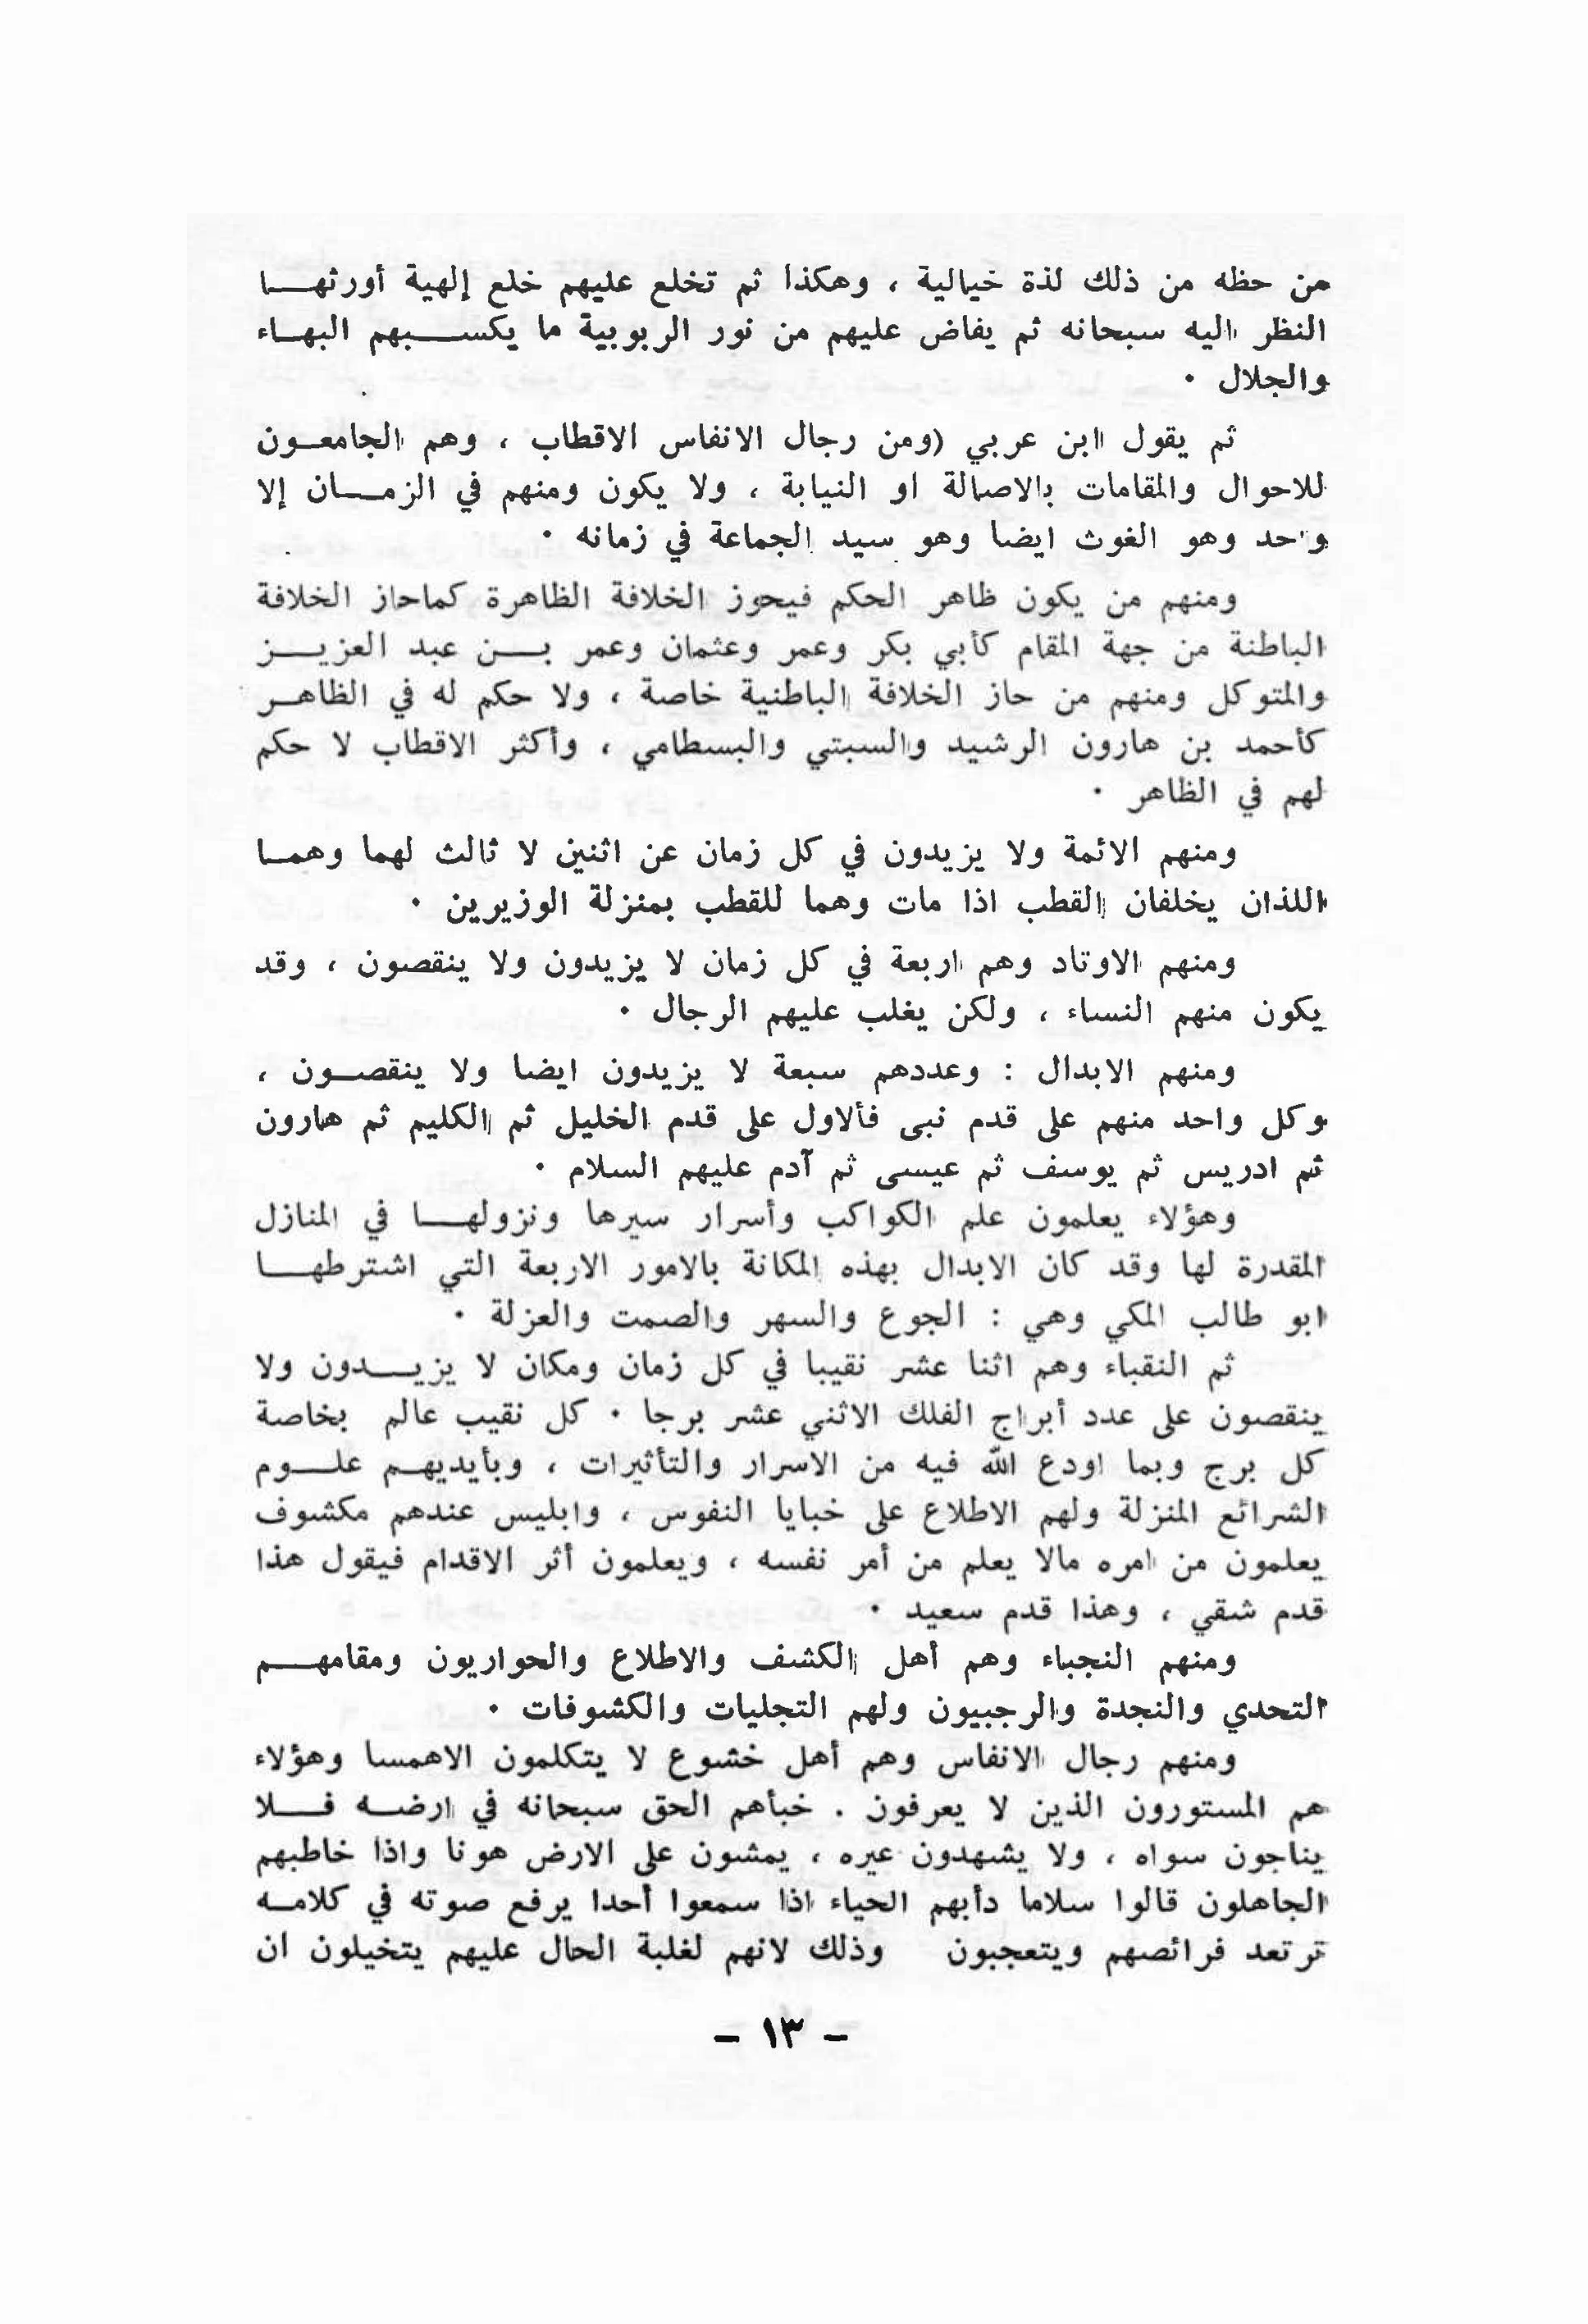 من حظه من ذلك لذة خيالية ، وهكذا ثم تخلع عليهم خلع إلهية أورثهـــا
النظر اليه سبحانه ثم يفاض عليهم من نور الربوبية ما يكســـبهم البهـاء
والجلال ٠
ثم يقول ابن عربي (ومن رجال الانفاس الاقطاب ، وهم الجامعـون
للاحوال والمقامات بالاصالة او النيابة ، ولا يكون ومنهم في الزمـــان إلا
واحد وهو الغوث ايضا وهو سيد الجماعة في زمانه ٠
ومنهم من يكون ظاهر الحكم فيحوز الخلافة الظاهرة كماحاز الخلافة
الباطنة من جهة المقام كأبي بكر وعمر وعثمان وعمر بـــن عبد العزيـــز
والمتوكل ومنهم من حاز الخلافة الباطنية خاصة ، ولا حكم له في الظاهـر
كأحمد بن هارون الرشيد والسبتي والبسطامي ، وأكثر الاقطاب لا حكم
لهم في الظاهر ٠
ومنهم الائمة ولا يزيدون في كل زمان عن اثنين لا ثالث لهما وهمـا
اللذان يخلفان القطب اذا مات وهما للقطب بمنزلة الوزيرين ٠
ومنهم الاوتاد وهم اربعة في كل زمان لا يزيدون ولا ينقصون ، وقد
يكون منهم النساء ، ولكن يغلب عليهم الرجال ٠
ومنهم الابدال : وعددهم سبعة لا يزيدون ايضا ولا ينقصـون ،
وكل واحد منهم على قدم نبى فألاول على قدم الخليل ثم الكليم ثم هارون
ثم ادريس ثم يوسف ثم عيسى ثم آدم عليهم السلام ٠
وهؤلاء يعلمون علم الكواكب وأسرار سيرها ونزولهـــا في المنازل
المقدرة لها وقد كان الابدال بهذه المكانة بالامور الاربعة التي اشترطهـــا
ابو طالب المكي وهي : الجوع والسهر والصمت والعزلة ٠
ثم النقباء وهم اثنا عشر نقيبا في كل زمان ومكان لا يزيـــدون ولا
ينقصون على عدد أبراج الفلك الاثني عشر برجا ٠ كل نقيب عالم بخاصة
كل برج وبما اودع الله فيه من الاسرار والتأثيرات ، وبأيديهـم علـــوم
الشرائع المنزلة ولهم الاطلاع على خبايا النفوس ، وابليس عندهم مكشوف
يعلمون من امره مالا يعلم من أمر نفسه ، ويعلمون أثر الاقدام فيقول هذا
قدم شقي ، وهذا قدم سعيد ٠
ومنهم النجباء وهم أهل الكشف والاطلاع والحواريون ومقامهـــم
التحدي والنجدة والرجبيون ولهم التجليات والكشوفات ٠
ومنهم رجال الانفاس وهم أهل خشوع لا يتكلمون الاهمسا وهؤلاء
هم المستورون الذين لا يعرفون . خبأهم الحق سبحانه في ارضـه فـــلا
يناجون سواه ، ولا يشهدون عيره ، يمشون على الارض هونا واذا خاطبهم
الجاهلون قالوا سلاما دأبهم الحياء اذا سمعوا أحدا يرفع صوته في كلامـه
ترتعد فرائصهم ويتعجبون وذلك لانهم لغلبة الحال عليهم يتخيلون ان
– ١٣ –